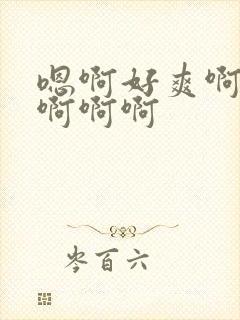 嗯啊好爽啊
啊啊啊
岑百六